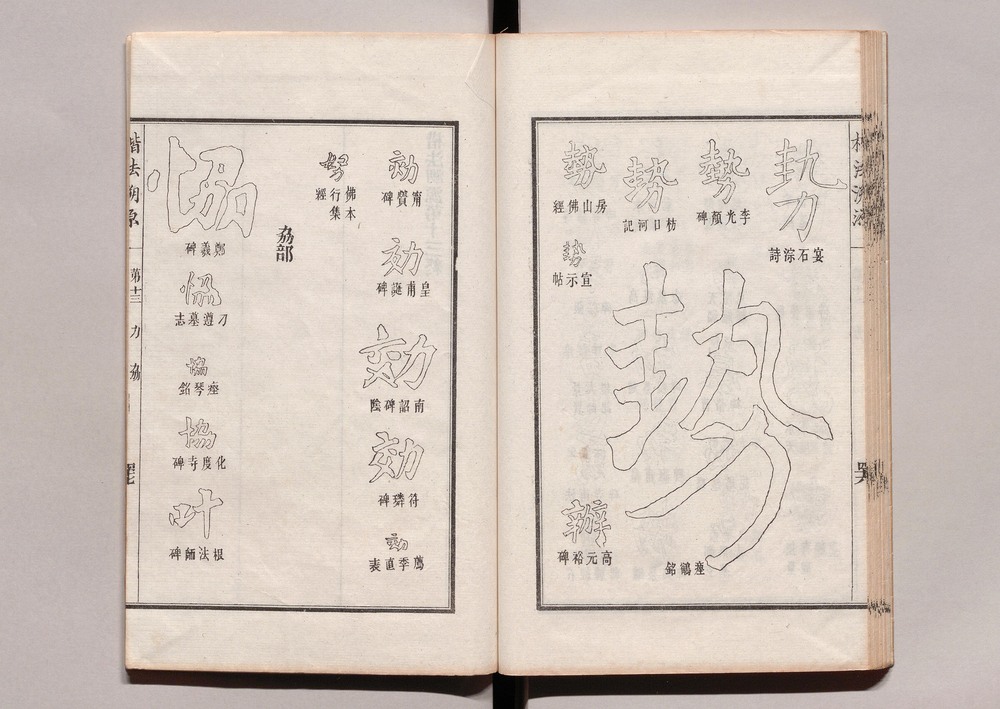 勢
宴石淙詩
勢
李光顏碑
勢
枋口河記
勢
瘞鶴銘
勢
房山佛經
勢
宣示帖
辦
高元裕碑
効
甯贙碑
効
皇甫誕碑
効
南詔碑陰
効
符璘碑
効
薦季直表
努
佛本行集經
劦部
恊
鄭羲碑
恊
刁遵墓志
協
瘞琴銘
協
化度寺碑
叶
根法師碑
楷法溯原
第十三
力
劦